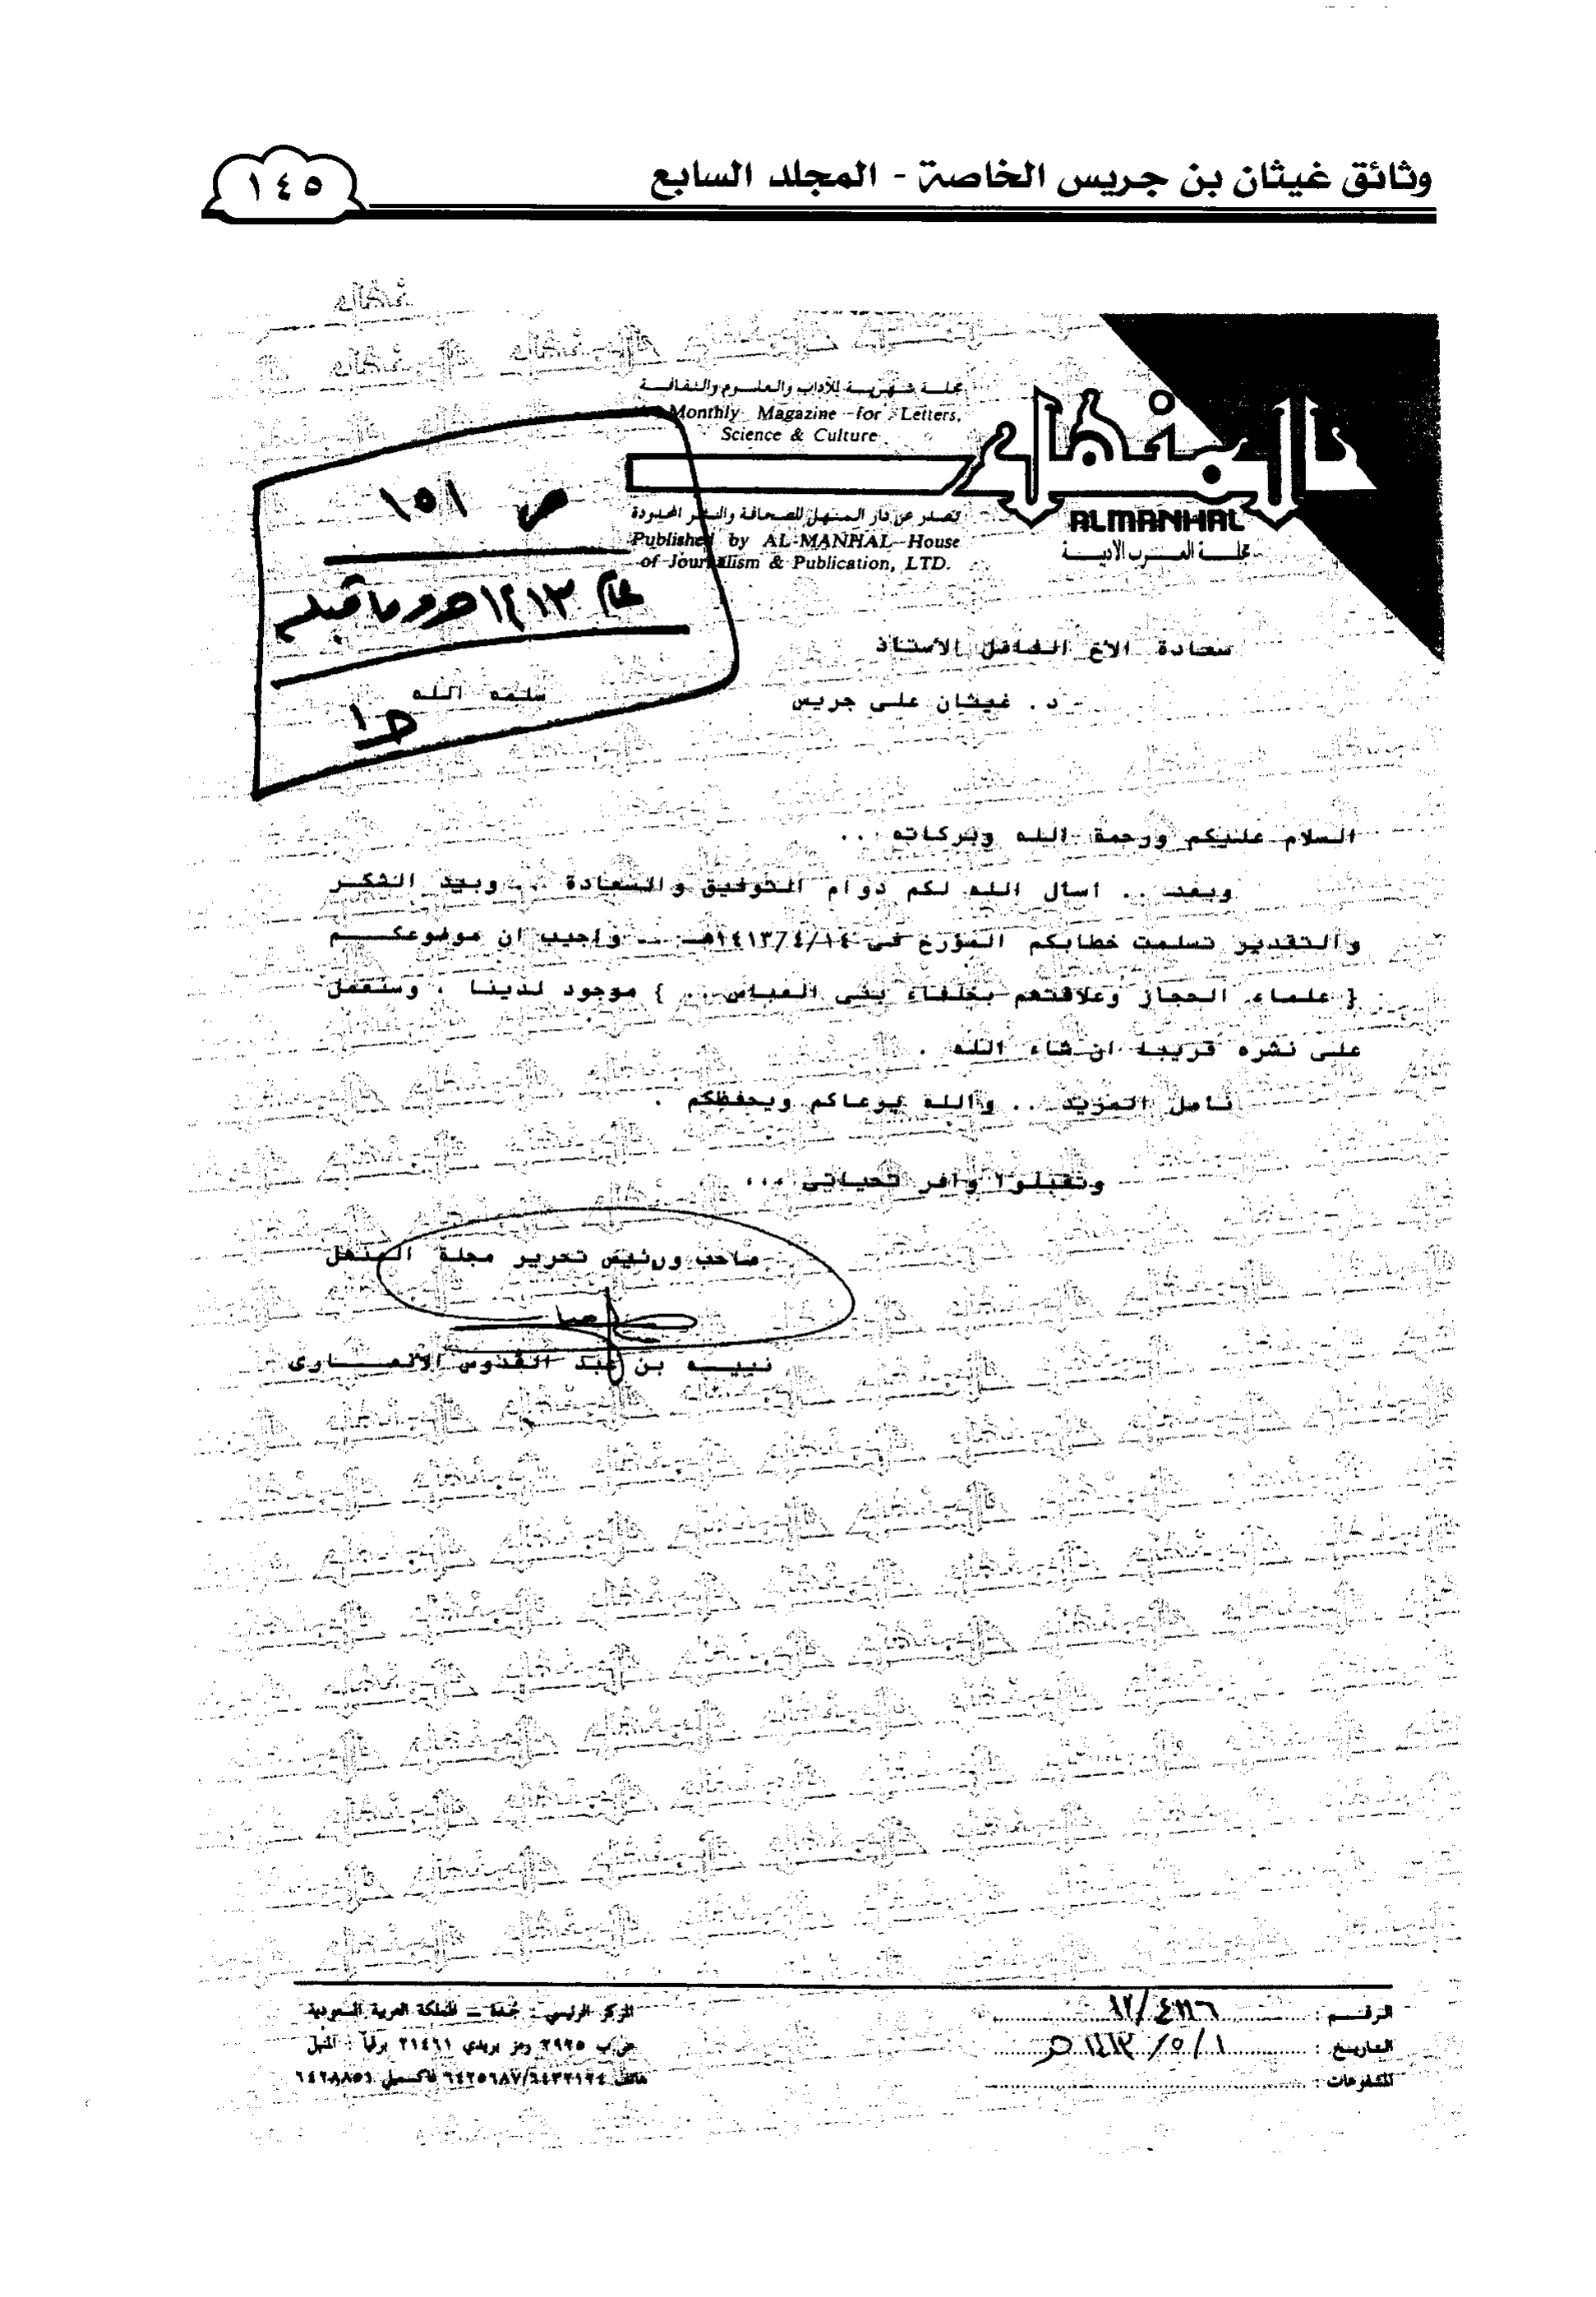 وثائق غيثان بن جريس الخاصة - المجلد السابع
١٤٥
مجلة شهرية للآداب والعلوم والثقافة
Monthly Magazine for Letters,
Science & Culture
المنهل
ALMANHAL
مجلة العرب الأدبية
تصدر عن دار المنهل للصحافة والنشر المحدودة
Published by AL-MANHAL House
of Journalism & Publication, LTD.
ص ١٥١
عام ١٤١٣هـ وما قبله
سعادة الاخ الفاضل الأستاذ
د . غيثان على جريس
سلمه الله
السلام عليكم ورحمة الله وبركاته ..
وبعد .. اسأل الله لكم دوام التوفيق والسعادة .. وبيد الشكر
والتقدير تسلمت خطابكم المؤرخ فى ١٤١٣/٤/١٤هـ .. واجيب ان موضوعكم
{ علماء الحجاز وعلاقتهم بخلفاء بنى العباس .. } موجود لدينا ، وسنعمل
على نشره قريبا ان شاء الله .
نامل المزيد .. والله يرعاكم ويحفظكم .
وتقبلوا وافر تحياتى ،،،
صاحب ورئيس تحرير مجلة المنهل
نبيه بن عبد القدوس الأنصارى
الرقم :
التاريخ : ١ / ٥ / ١٤١٣ هـ
المشفوعات :
المركز الرئيسي : جدة - المملكة العربية السعودية
ص.ب ٢٩٢٥ رمز بريدي ٢١٤٦١ برقياً : المنهل
هاتف ٦٤٣٢١٢٤/٦٤٢٥٦٨٧ فاكسميلي ٦٤٢٨٨٥٦